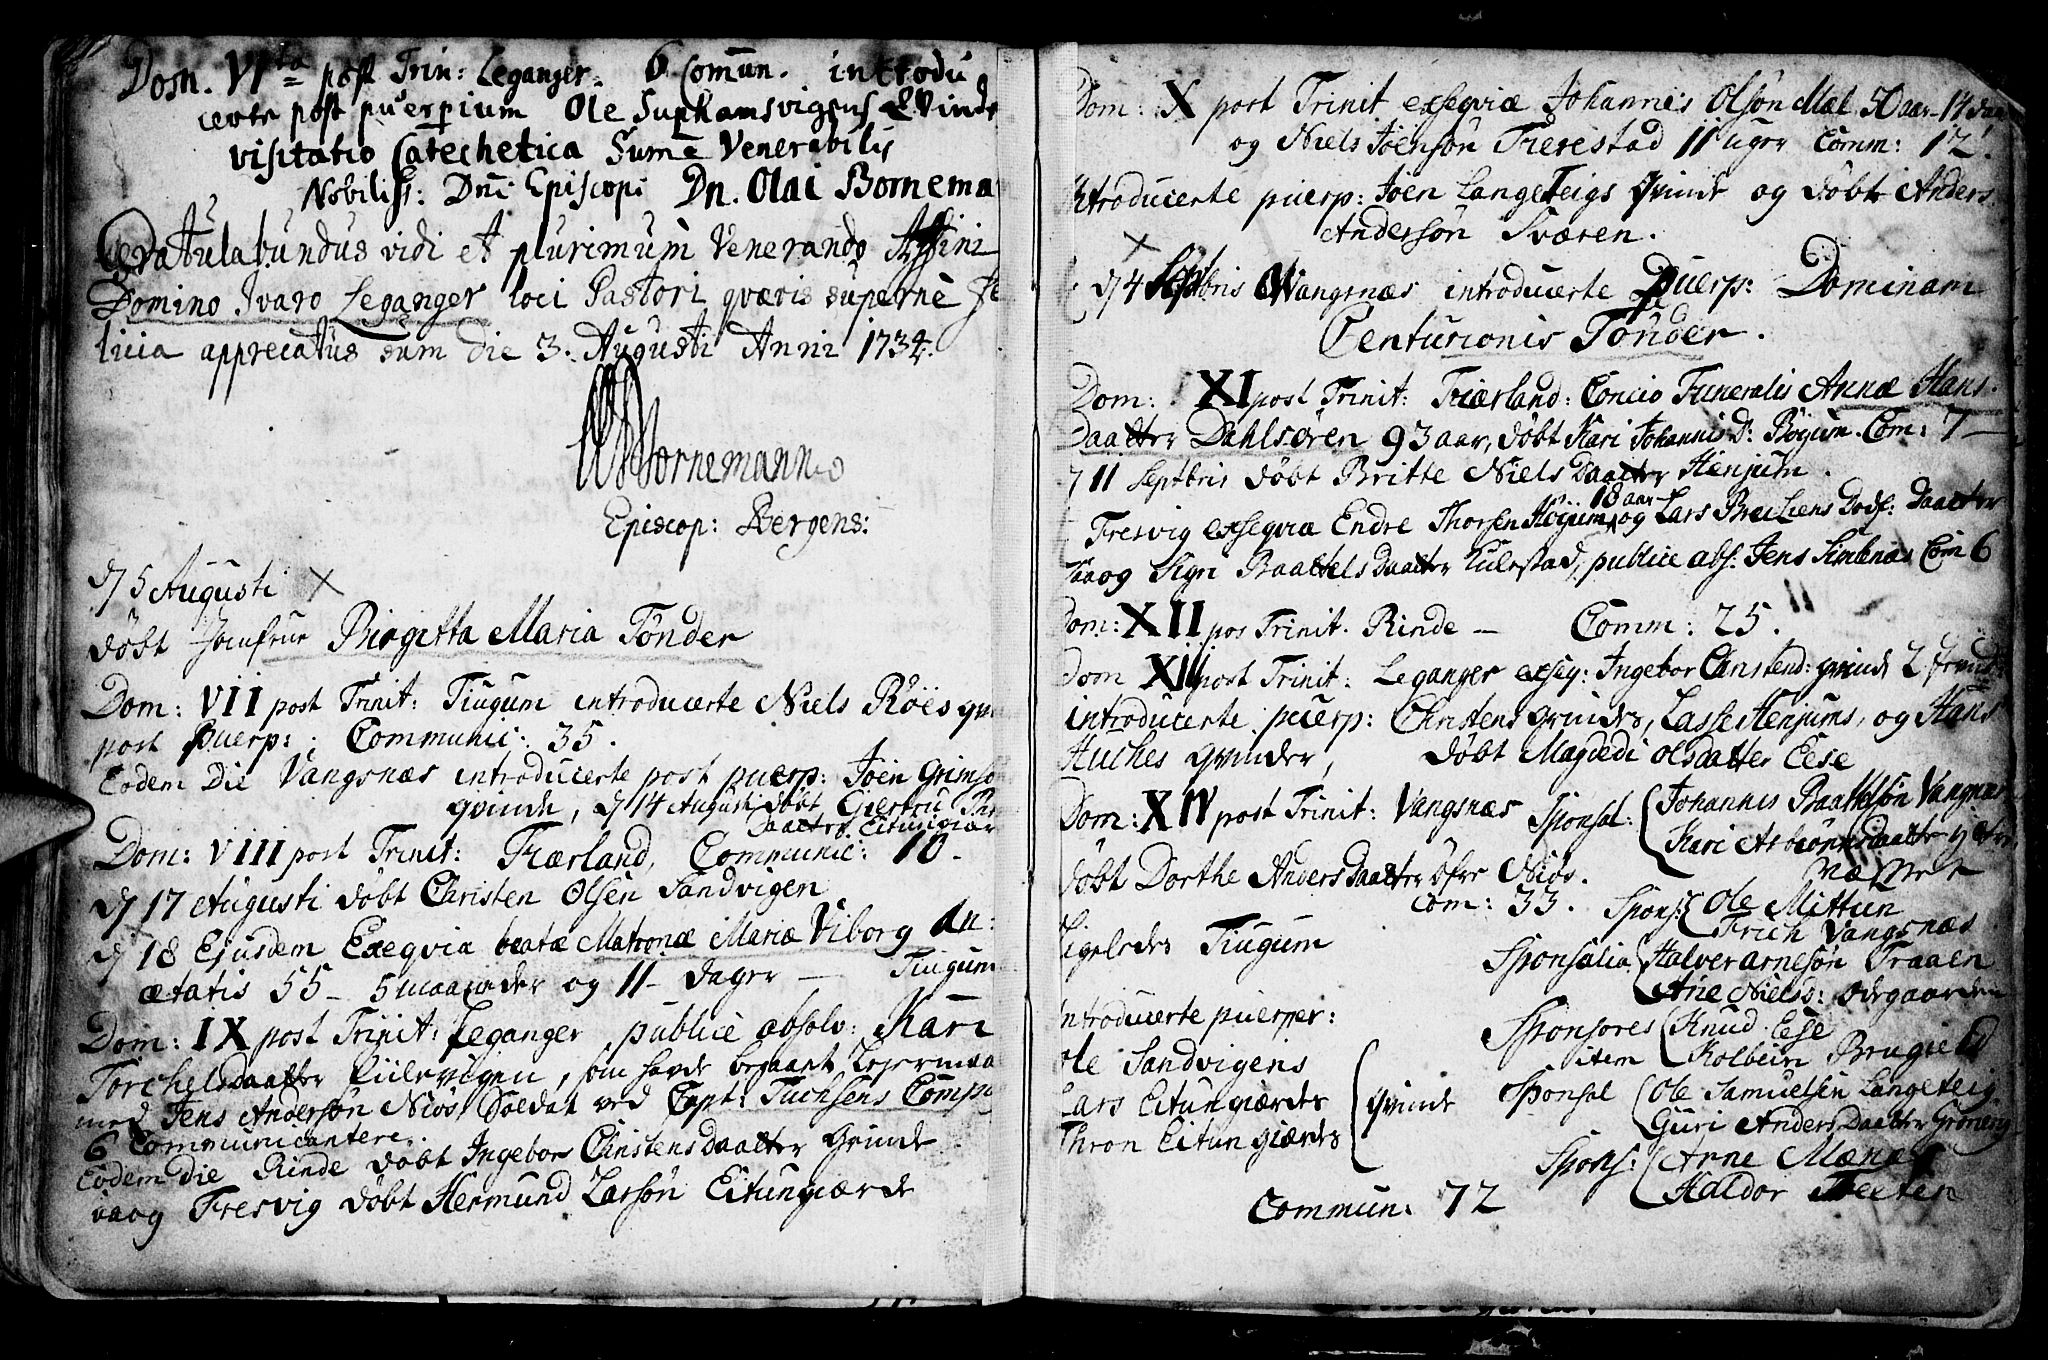 Dom. VIta post Trin: Leganger. 6 Comun. introdu
certe post puerpium Ole Suphamsvigens Qvinde
visitatio Catechetica Sume Venerabilis
Nobiliss: Dni Episcopi Dn. Olai Bornema
Gratulabundus vidi et plurimum Venerando Affini
Domino Ivaro Leganger loci Pastori qvævis superne fe
licia apprecatus sum die 3. Augusti Anni 1734.
OBornemann
Episcop: Bergens:
D 5 Augusti X
døbt Jomfrue Birgitta Maria Tønder
Dom: VII post Trinit: Tiugum introducerte Niels Røies qvi
post puerp: ; Communic: 35.
Eodem Die Vangsnæs introducerte post puerp: Joen Grimsø
qvinde, D 14 Augusti døbt Giertru
Daatter Eitungiær
Dom: VIII post Trinit: Fiærland, Communic: 10.
D 17 Augusti døbt Christen Olsen Sandvigen
D 18 Ejusdem Exeqvia beatæ Matronæ Mariæ Viborg An:
ætatis 55 - 5 maaneder og 11 - dager - Tiugum
Dom: IX post Trinit: Leganger publice absolv: Kari
Torchelsdaatter Eilevigen, som havde begaaet Lejermaa
med Jens Andersøn Niøs Soldat ved Capt: Tuchsens Comp
6 Communicantere.
Eodem Die Rinde døbt Ingebor Christensdaatter Grinde
vaog Fresvig døbt Hermund Larsøn Eitungiærde
Dom: X post Trinit exseqviæ Johannes Olsøn Mæl 50 aar 14 da
og Niels Joensøn Fierestad 11 uger Comm: 12.
introducerte puerp: Joen Langeteigs qvinde og døbt Anders
Andersøn Sværen.
X
D 4 Septbris Vangsnæs introducerte Puerp: Dominam
Centurionis Tønder.
Dom: XI post Trinit: Fiærland: Concio Funeralis Annæ Hans
Daatter Dahlsøren 93 aar, døbt Kari Johannis D: Bøijum. Com: 7 -
D 11 Septbris døbt Britte Niels Daatter Henjum.
Fresvig exseqvia Endre Thorsen Høijum 18 aar og Lars Breiliens Dødf: Daatter
vaog Sigri Baattels Daatter Kulestad, publice abs: Jens Simlenæs Com 6
Dom: XII pos Trinit. Rinde - Comm: 25.
Dom XIII post Trinit: Leganger exseq: Ingebor Christend: grinde
introducerte puerp: Christens Grindes, Lasse Henjums, og Hans
Huches qvinder, døbt Magdedi Olsdaatter Eese
Dom: XIV post Trinit: Vangsnæs Sponsal: Johannis Baattelsøn Vangnæs
Kari Asbiørnsdaatter
døbt Dorthe Anders Daatter øfre Niøs.
Com: 33. Spons: Ole Mittun
Erich Vangsnæs
Ligeledes Tiugum Sponsalia: Halver Arnesøn Fraaen
Ane Nielsd: Ødegaarden
introducerte puerper: Sponsores Knud Eese
Ole Sandvigens item Kolbein Brugield
Lars Eitungiærdes qvinde Sponsal Ole Samuelsøn Langeteig
Thron Eitungiærdes Guri Anders Daatter Grøneng
Spons: Arne Mænæs
Haldor Tveeten
Commun: 72